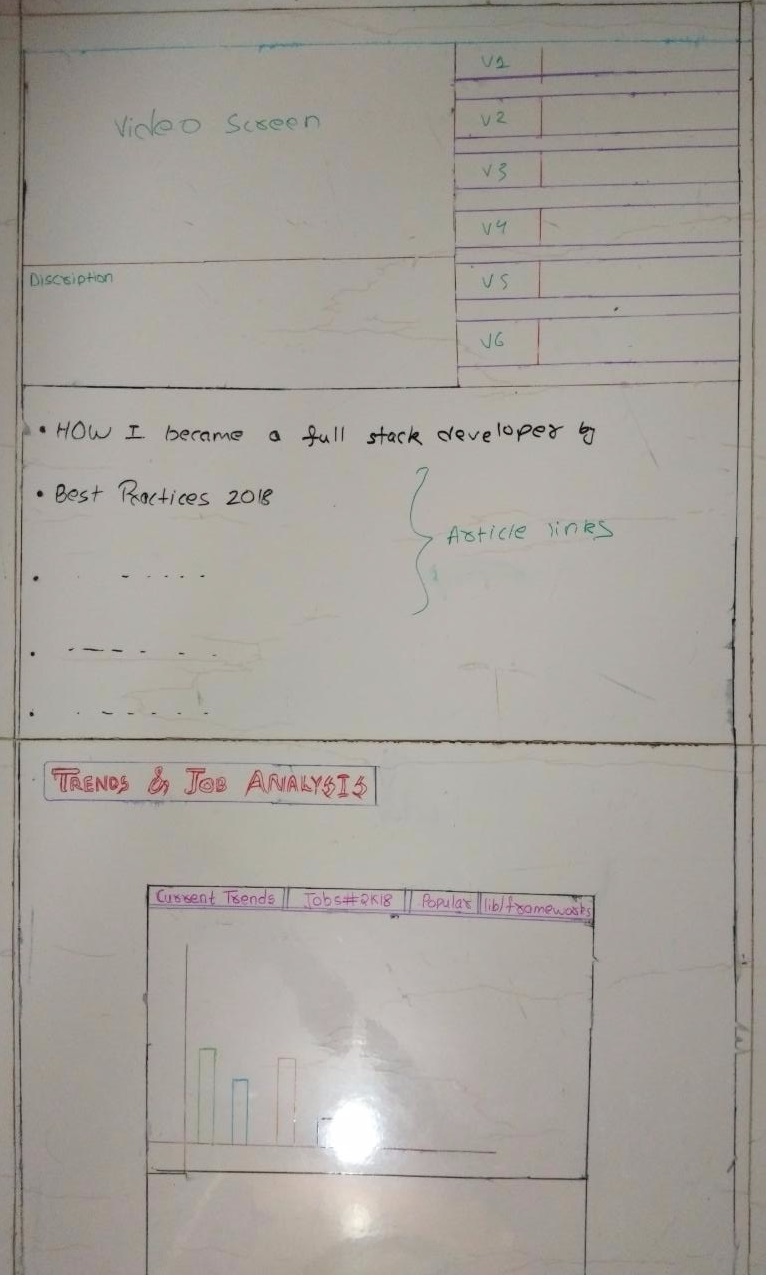 Video Screen
V1
V2
V3
V4
V5
V6
Discription
• HOW I became a full stack developer by
• Best Practices 2018
Article links
TRENDS & JOB ANALYSIS
Current Trends || Jobs#2K18 || Popular || lib/frameworks